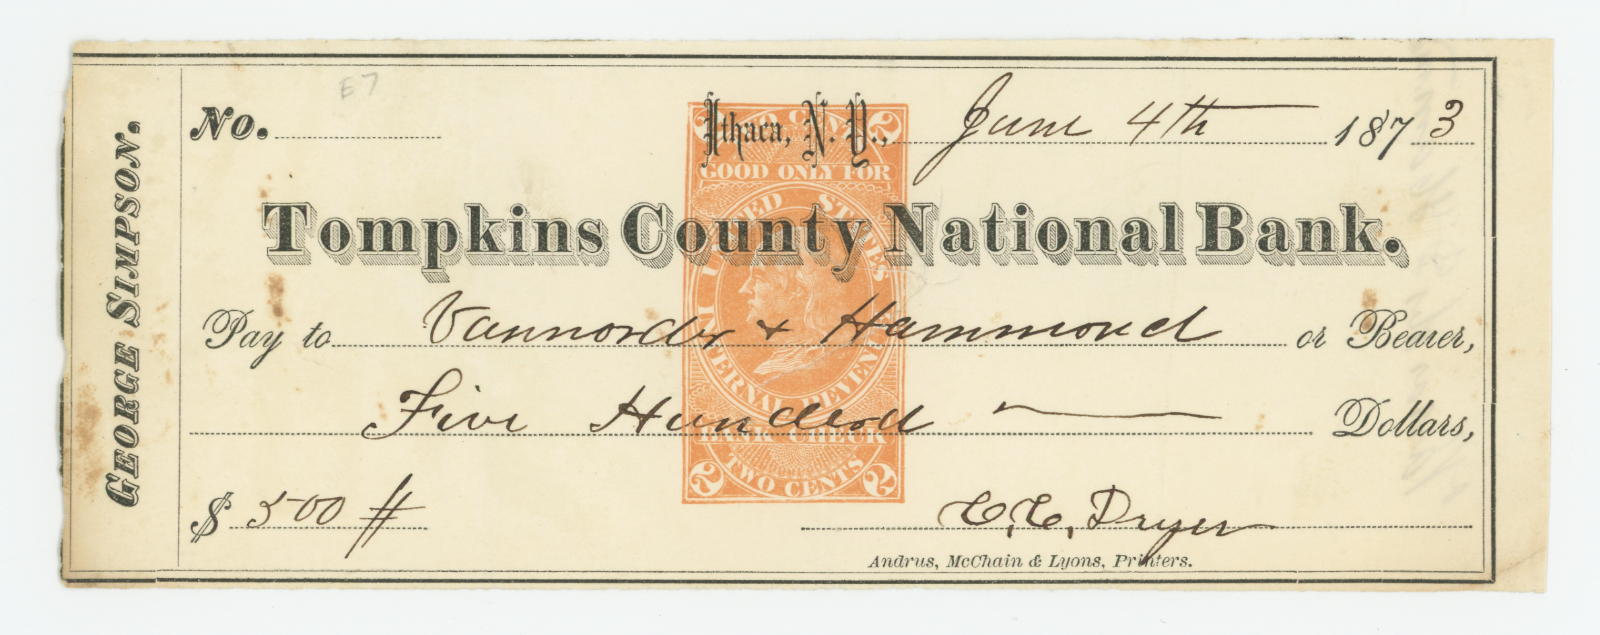 GEORGE SIMPSON.
E7
No.
Ithaca, N. Y., June 4th 1873
TWO CENTS
GOOD ONLY FOR
UNITED STATES INTERNAL REVENUE
Tompkins County National Bank.
Pay to Vannorder & Hammond or Bearer,
Five Hundred Dollars,
BANK CHECK
2 TWO CENTS 2
$ 500 #
C. C. Dryer
Andrus, McChain & Lyons, Printers.